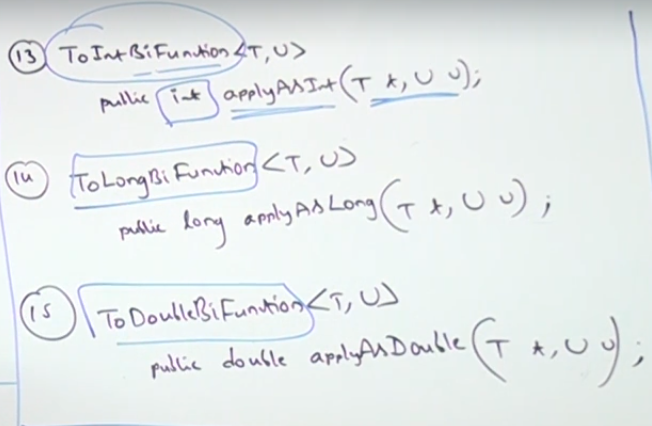 13 ToIntBiFunction<T,U>
public int applyAsInt(T t, U u);
14 ToLongBiFunction<T, U>
public long applyAsLong(T t, U u);
15 ToDoubleBiFunction<T, U>
public double applyAsDouble(T t, U u);